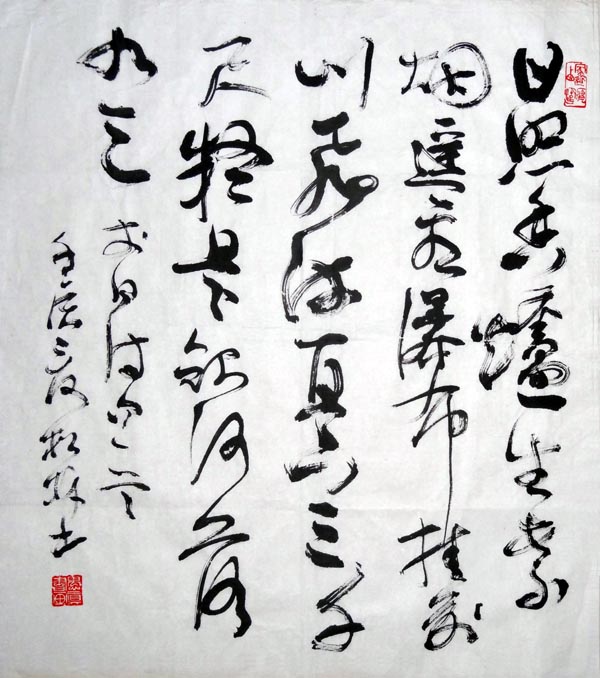 日照香爐生紫
烟遥看瀑布挂前
川飛流直下三千
尺疑是銀河落
九天
李白诗
壬辰之夏松林书